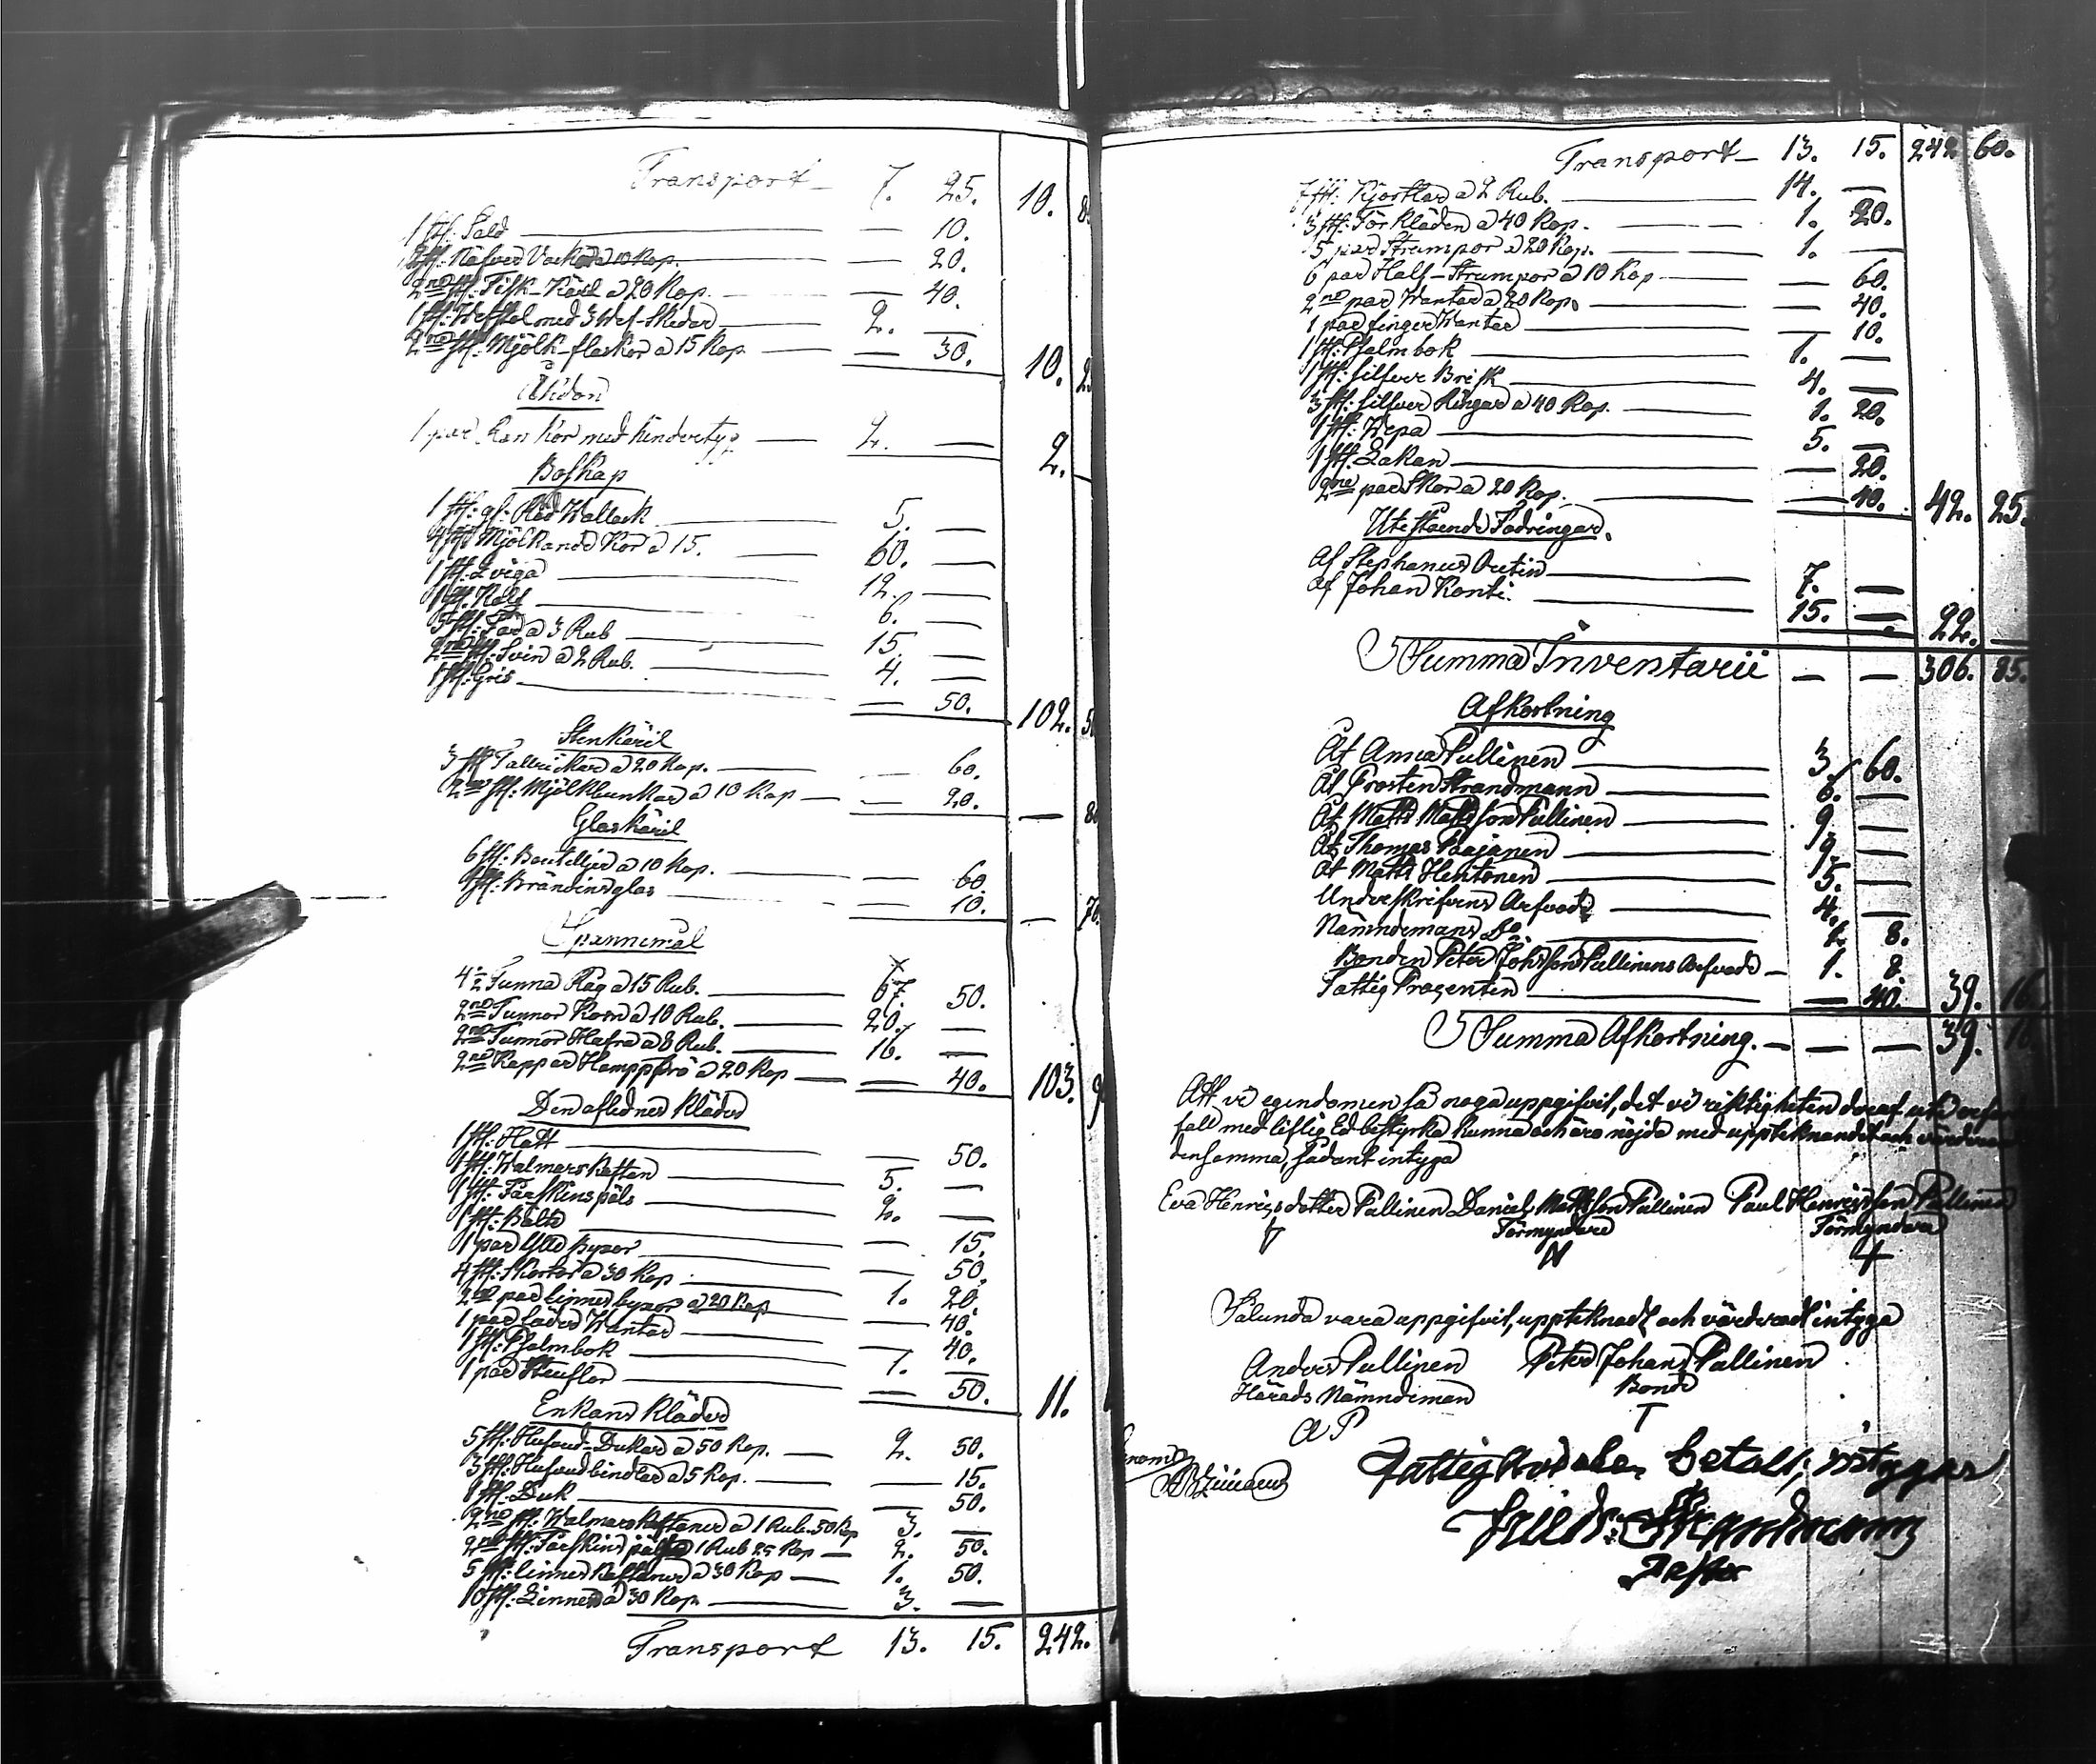 Transport 7. 25. 10.
1 st: Såld — 10.
2 st: Näfver Vackor a 10 Kop. — 20.
2ne st: Fisk-Kärl a 20 Kop. — 40.
1 st: Wefstol med 3 Wef-Skedar 2. —
2ne st: Mjölk-flaskor a 15 Kop — 30. 10. 25
Åkdon
1 par med 2. — 2. —
Boskap
1 st: gl: Röd Wallack 5. —
4 st: Mjölkande Kor a 15. 60. —
1 st: Qviga 12. —
1 st: Kalf 6. —
5 st: Får a 3 Rub 15. —
2ne st: Svin a 2 Rub. 4. —
1 st: Gris — 50. 102. 50
Stenkäril
3 st Tallrickar a 20 Kop. — 60.
2ne st: Mjölkbunkar a 10 Kop — 20. — 80
Glaskäril
6 st: Bouteljer a 10 Kop. — 60.
1 st: Brännvinsglas — 10. — 70.
Spannemål
4½ Tunna Råg a 15 Rub. 67. 50.
2ne Tunnor Korn a 10 Rub. 20. —
2ne Tunnor Hafra a 8 Rub. 16. —
2ne Kappar Hampfrö a 20 Kop — 40. 103. 90
Den aflednes Kläder
1 st: Hatt — 50.
1 st: Walmars Kaftan 5. —
1 st: Fårskinspäls 2. —
1 st: Bälte — 15.
1 par Ylle byxor — 50.
4 st: Skortor a 30 Kop 1. 20.
2ne par linnes byxor a 20 Kop — 40.
1 par läder Wantar — 40.
1 st: Psalmbok 1. —
1 par Steuflor — 50. 11.
Enkans Kläder
5 st: Hufvud-Dukar a 50 Kop. 2. 50.
3 st: Hufvudbindlar a 5 Kop. — 15.
1 st: Duk — 50.
2ne st: Walmars Kaftaner a 1 Rub. 50 Kop 3. —
2ne st: Fårskins pälsar 1 Rub 25 Kop — 2. 50.
5 st: linnes Kaftaner a 30 Kop 1. 50.
10 st: Linnen a 30 Kop. 3. —
Transport 13. 15. 242.
Transport 13. 15. 242 60.
7 st: Kjortlar a 2 Rub. 14. —
3 st: Förkläden a 40 Kop. 1. 20.
5 par Strumpor a 20 Kop. 1. —
6 par Half-Strumpor a 10 Kop — 60.
2ne par Wantar a 20 Kop — 40.
1 par finger Wantar — 10.
1 st: Psalmbok 1. —
1 st: silfver Brisk 4. —
3 st: silfver Ringar a 40 Kop. 1. 20.
1 st: Wepa 5. —
1 st: Lakan — 20.
2ne par Skor a 20 Kop. — 40. 42. 25.
Utestående Fodringar.
Af Stephanus Outin 7. —
Af Johan Konti. 15. — 22. —
Summa Inventarii — — 306. 85.
Afkortning
Åt Anna Pullinen 3. 60.
Åt Prosten Strandmann 6. —
Åt Matts Mattsson Pullinen 9. —
Åt Thomas Paajanen 9. —
Åt Matts Hentonen 5. —
Underskrifvens Arfvode 4. —
Nämndemans Do. 8.
Bonden Peter Johsson Pullinens Arfvode 1. 8.
Fattig Procenten — 40. 39. 16
Summa Afkortning. — — 39. 16
Att vi egendomen så noga uppgifvit, det vi riktigheten deraf
fall med liflig Ed bestyrka kunna och äro nöjda med uppteknandet och värderan
densamma, sådant intyga
Eva Henrigsdotter Pullinen Daniel Mattsson Pullinen Paul Henrigsson Pullinen
Förmyndare Förmyndare
Sålunda vara uppgifvit, uppteknadt och värderadt intyga
Anders Pullinen Peter Johans Pullinen
Härads Nämndeman Bonde
A P T
Fattigkodelen betalt, intygar
Strandmann
Pastor